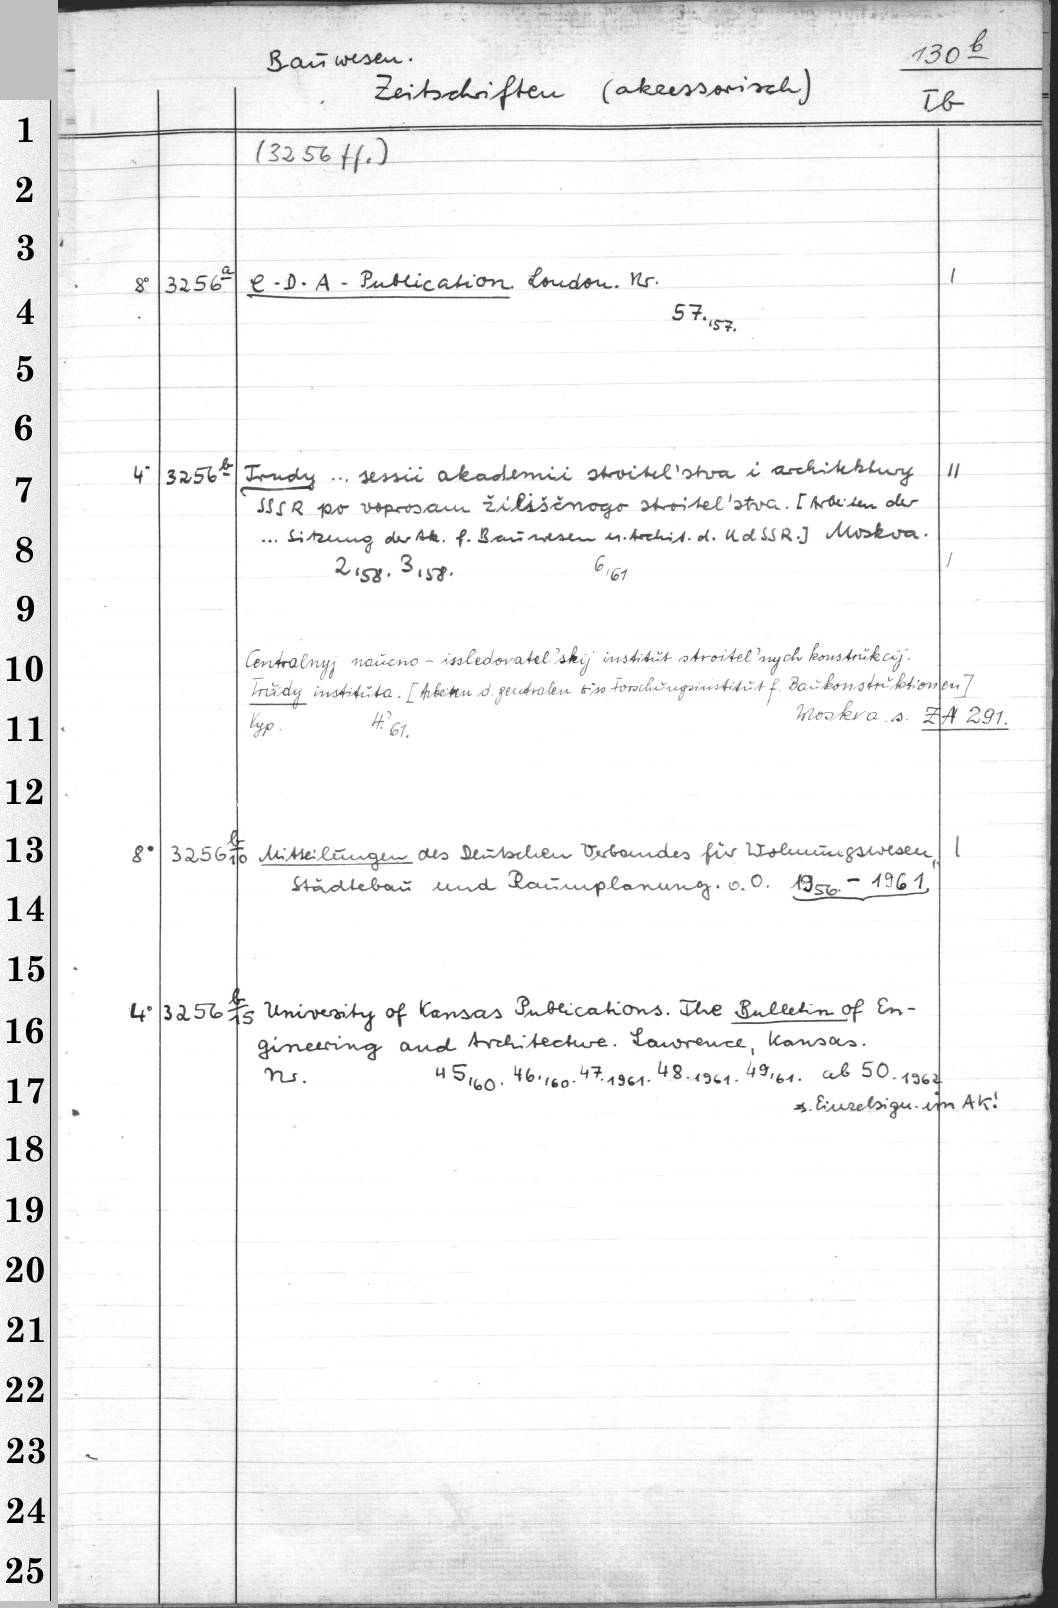 Bauwesen.
130 b
Zeitschriften (akzessorisch)
Ib
1
(3256 ff.)
2
3
8° 3256 a C.D.A-Publication. London. Nr. I
4
57.,57.
5
6
4° 3256 b Trudy ... sessii akademii stroitel'stva i architektury II
7
SSSR po voprosam žiliščnogo stroitel'stva. [Arbeiten der
8
... Sitzung der Ak. f. Bauwesen u. Archit. d. UdSSR.] Moskva.
2,58. 3,58. 6,61 I
9
10
Centralnyj naučno-issledovatel'skij institut stroitel'nych konstrukcij.
Trudy instituta. [Arbeiten d. zentralen wiss Forschungsinstitut f. Baukonstruktionen]
11
Vyp. 4.,61. Moskva s. ZA 291.
12
13
8° 3256 b/10 Mitteilungen des Deutschen Verbandes für Wohnungswesen, I
14
Städtebau und Raumplanung. o.O. 1956.-1961.
15
4° 3256 b/15 University of Kansas Publications. The Bulletin of En-
16
gineering and Architecture. Lawrence, Kansas.
17
Nr. 45,60. 46.,60. 47.1961. 48.1961. 49,61. ab 50.1962
s. Einzelsign. im AK!
18
19
20
21
22
23
24
25